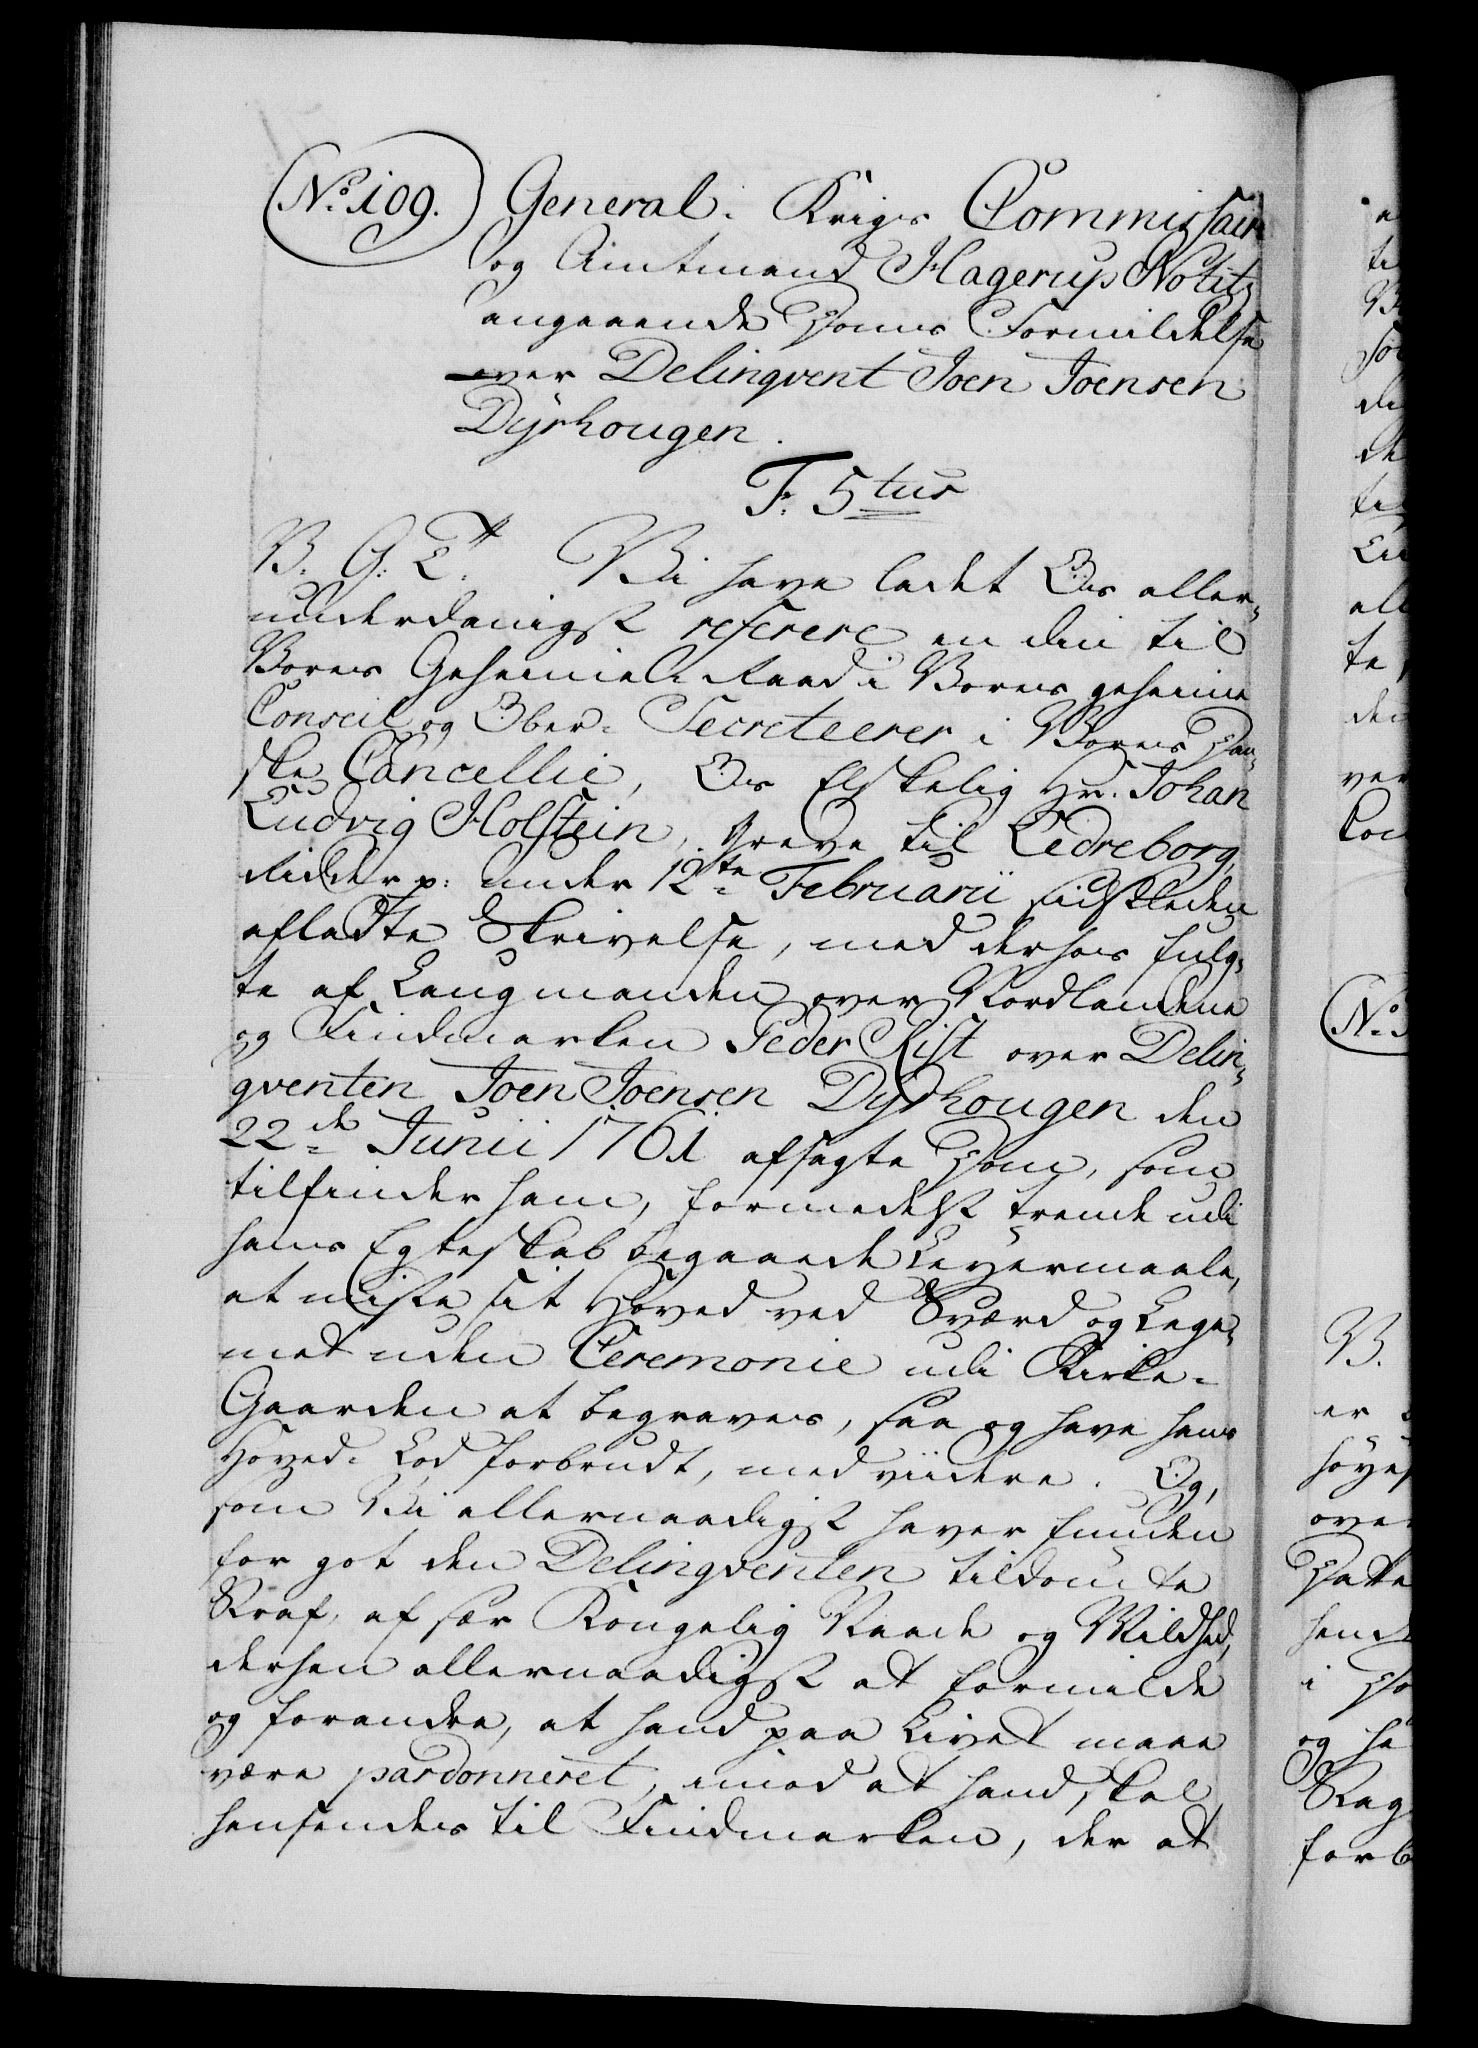 No. 109. General-Krigs Commissair
og Amtmand Hagerup Notitz
angaaende Doms Formildelse
over Delinqvent Joen Joensen
Dyrhougen.
F: 5tus
V. G: T. Vi have ladet Os aller-
underdanigst referere en din til
Vores Geheime-Raad i Vores geheime
Conseil og Ober-Secreteerer i Vores Dan-
ske Cancellie, Os Elskelig Hr. Johan
Ludvig Holstein, Greve til Ledreborg,
Ridder p: under 12te Februarii sidstleden
afladte Skrivelse, med derhos fulg-
te af Laugmanden over Nordlandene
og Findmarken Peder Rist over Delin-
qventen Joen Joensen Dyrhougen den
22de Junii 1761 afsagte Dom, som
tilfinder ham, formedelst trende udi
hans Egteskab begaaede Leyermaale,
at miste sit Hoved ved Sværd og Lege-
met uden Ceremonie udi Kirke-
Gaarden at begraves, saa og have hans
Hoved-Lod forbrudt, med viidere. Og,
som Vi allernaadigst haver funden
for got den Delinqventen tildømte
Straf, af sær Kongelig Naade og Mildhed,
derhen allernaadigst at formilde
og forandre, at hand paa Livet maae
være pardonneret, imod at hand skal
hensendes til Findmarken, der at